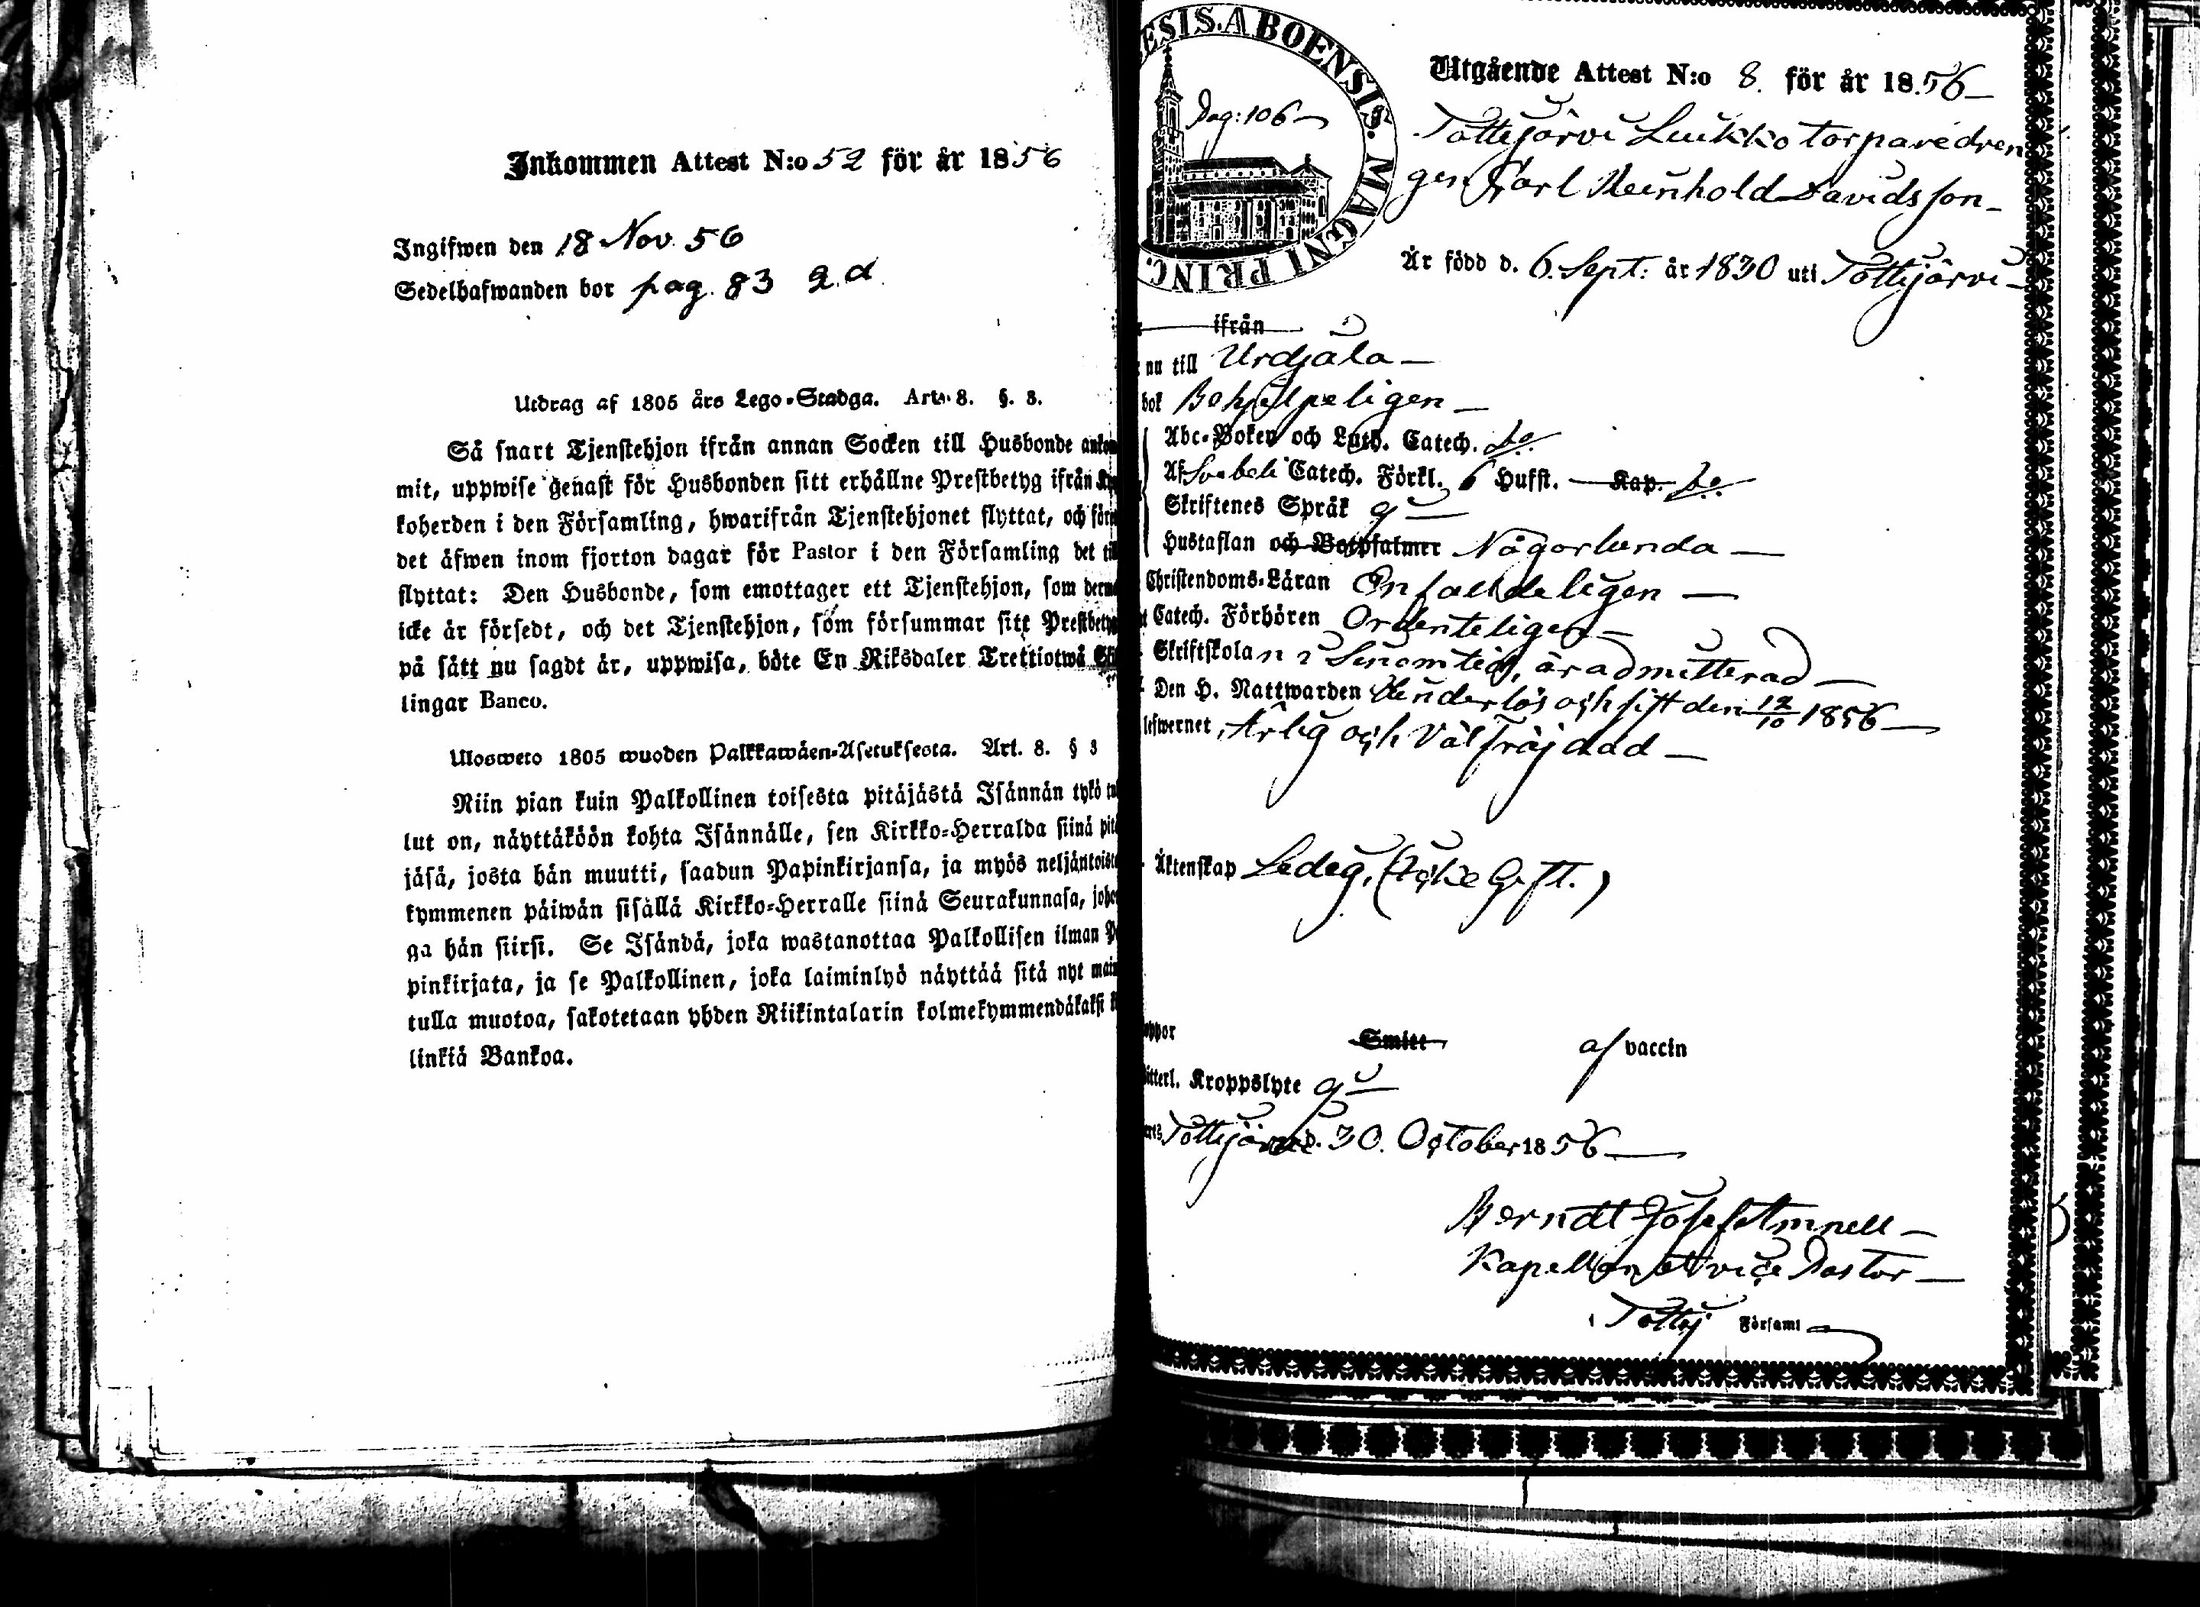 Inkommen Attest N:o 52 för år 1856
Ingifwen den 18 Nov. 56
Sedelhafwanden bor pag. 83 2.d
Utdrag af 1805 års Lego-Stadga. Art. 8. §. 3.
Så snart Tjenstehjon ifrån annan Socken till Husbonde ankom
mit, uppwise genast för Husbonden sitt erhållne Prestbetyg ifrån Ky
koherden i den Församling, hwarifrån Tjenstehjonet flyttat, och före
det äfwen inom fjorton dagar för Pastor i den Församling det til
flyttat: Den Husbonde, som emottager ett Tjenstehjon, som derm
icke är försedt, och det Tjenstehjon, som försummar sitt Prestbety
på sätt nu sagdt är, uppwisa, böte En Riksdaler Trettiotwå Skil
lingar Banco.
Ulosweto 1805 wuoden Palkkawäen-Asetuksesta. Art. 8. § 3
Niin pian kuin Palkollinen toisesta pitäjästä Isännän tykö tul
lut on, näyttäköön kohta Isännälle, sen Kirkko-Herralda siinä pitä
jäsä, josta hän muutti, saadun Papinkirjansa, ja myös neljäntoista
kymmenen päiwän sisällä Kirkko-Herralle siinä Seurakunnasa, johon
ga hän siirsi. Se Isändä, joka wastanottaa Palkollisen ilman Pa
pinkirjata, ja se Palkollinen, joka laiminlyö näyttää sitä nyt mai
tulla muotoa, sakotetaan yhden Riikintalarin kolmekymmendäkaksi k
linkiä Bankoa.
ESIS. ABOENSIS. MAGNI PRINC.
Pag: 106
Utgående Attest N:o 8. för år 1856
Tottijärvi Luikko torparedren
gen Carl Reinhold Davidsson
Är född d. 6. Sept: år 1830 uti Tottijärvi
ifrån
nu till Urdjala
bok Behjelpeligen
Abc-Boken och Luth. Catech. do.
Af Svebeli Catech. Förkl. 6 Hufst. Kap. do.
Skriftenes Språk
Hustaflan och Botpsalmer Någorlunda
Christendoms-Läran Enfaldeligen
Catech. Förhören Ordenteligen
Skriftskolan i sinom tid, är admitterad
Den H. Nattwarden klanderlös och sist den 12/10 1856
lefwernet Ärlig och Välfräjdad
Äktenskap Ledig, (Icke Gift.)
koppor Smitt af vaccin
itterl. Kroppslyte
Tottijärvi d. 30. October 1856
Berndt Josef Amnell
Kapellan et vice Pastor
Tottij Församl